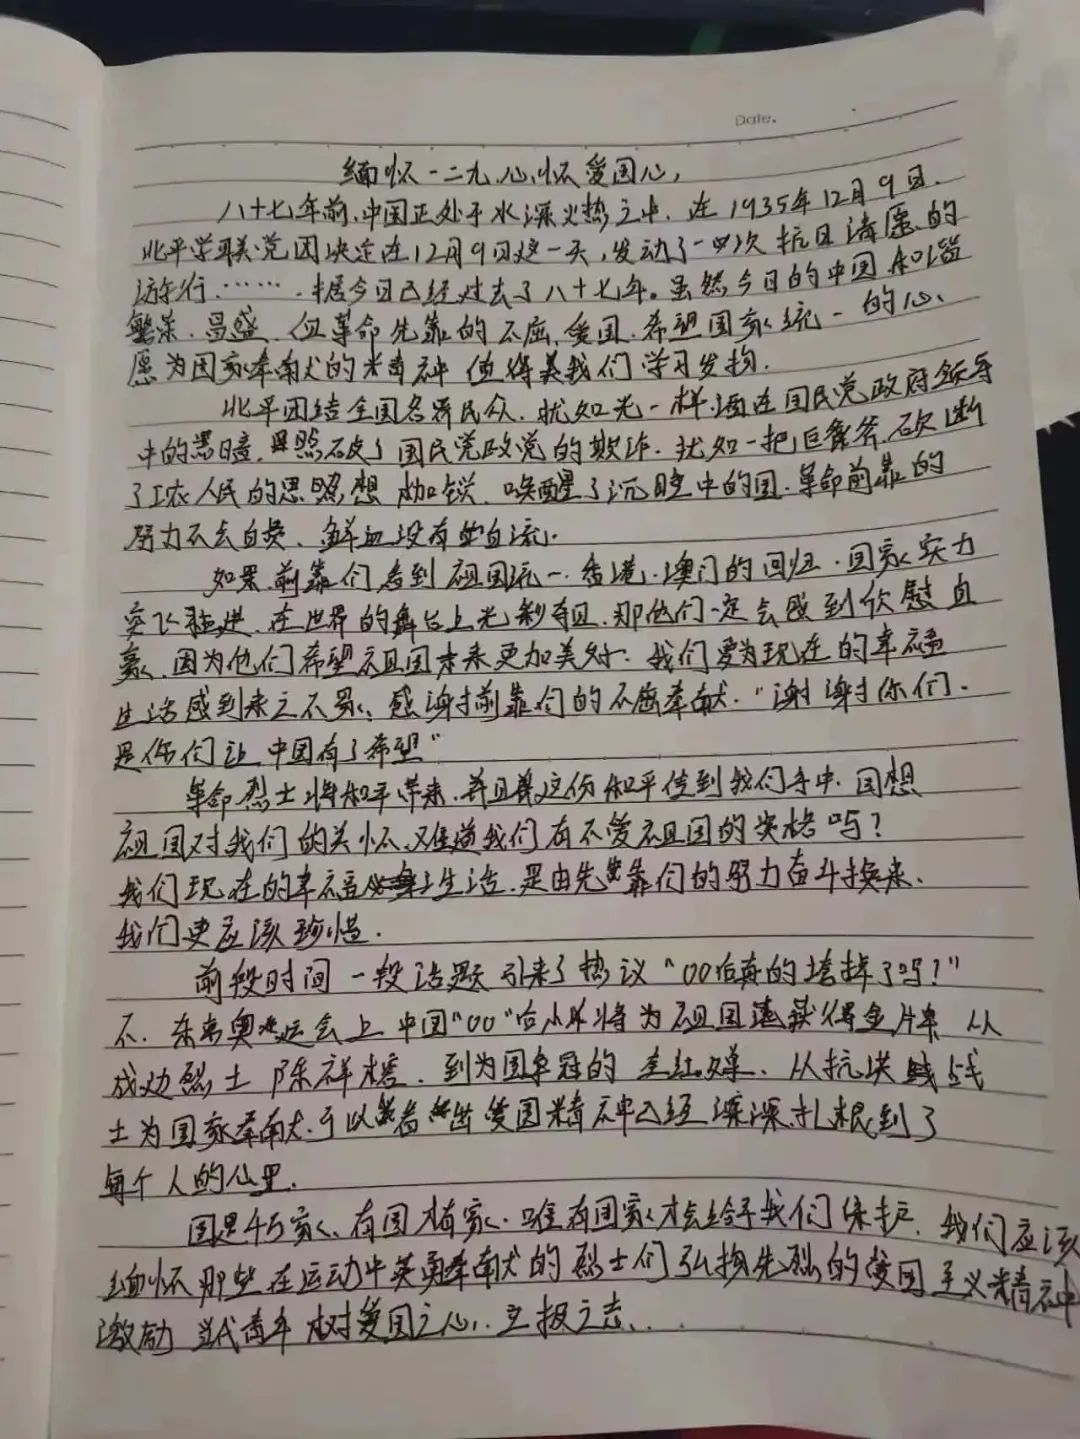 Date.
缅怀一二九,心怀爱国心,
八十七年前,中国正处于水深火热之中.在1935年12月9日.
北平学联党团决定在12月9日这一天,发动了一次抗日请愿的
游行…….据今日已经过去了八十七年。虽然今日的中国和谐
繁荣.昌盛.但革命先辈的不屈.爱国.希望国家统一的心、
愿为国家奉献的精神值得我们学习发扬.
北平团结全国各界民众.犹如光一样.洒在国民党政府领导
中的黑暗.照破了国民党政党的欺诈.犹如一把巨斧.砍断
了工农人民的思想枷锁.唤醒了沉睡中的国.革命前辈的
努力不会白费、鲜血没有白流.
如果前辈们看到祖国统一.香港.澳门的回归.国家实力
突飞猛进.在世界的舞台上光彩夺目.那他们一定会感到欣慰自
豪.因为他们希望祖国未来更加美好.我们要为现在的幸福
生活感到来之不易.感谢前辈们的不屈奉献."谢谢你们.
是你们让中国有了希望"
革命烈士将和平带来.并且将这份和平传到我们手中.回想
祖国对我们的关怀.难道我们有不爱祖国的资格吗?
我们现在的幸福生活.是由先辈们的努力奋斗换来.
我们更应该珍惜.
前段时间一段话题引来了热议"00后真的垮掉了吗?"
不.东京奥运会上中国"00"后小将为祖国获得金牌从
戍边烈士陈祥榕.到为国争冠的全红婵.从抗洪战
士为国家奉献.可以看出爱国精神已经深深扎根到了
每个人的心里.
国是千万家.有国才有家.唯有国家才会给予我们保护.我们应该
缅怀那些在运动中英勇奉献的烈士们弘扬先烈的爱国主义精神
激励当代青年树爱国之心.立报之志.